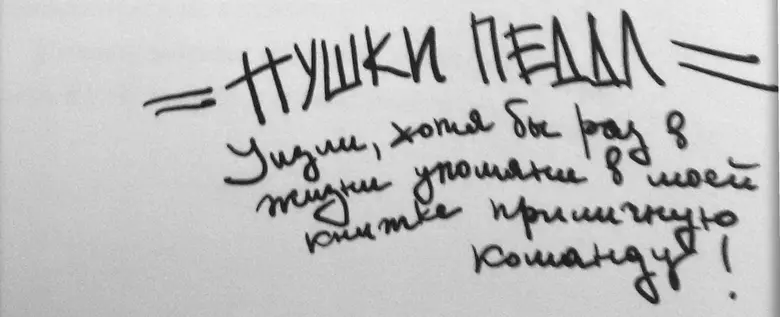 = ПУШКИ ПЕДДЛ =
Уизли, хотя бы раз в
жизни упомяни в моей
книжке приличную
команду!